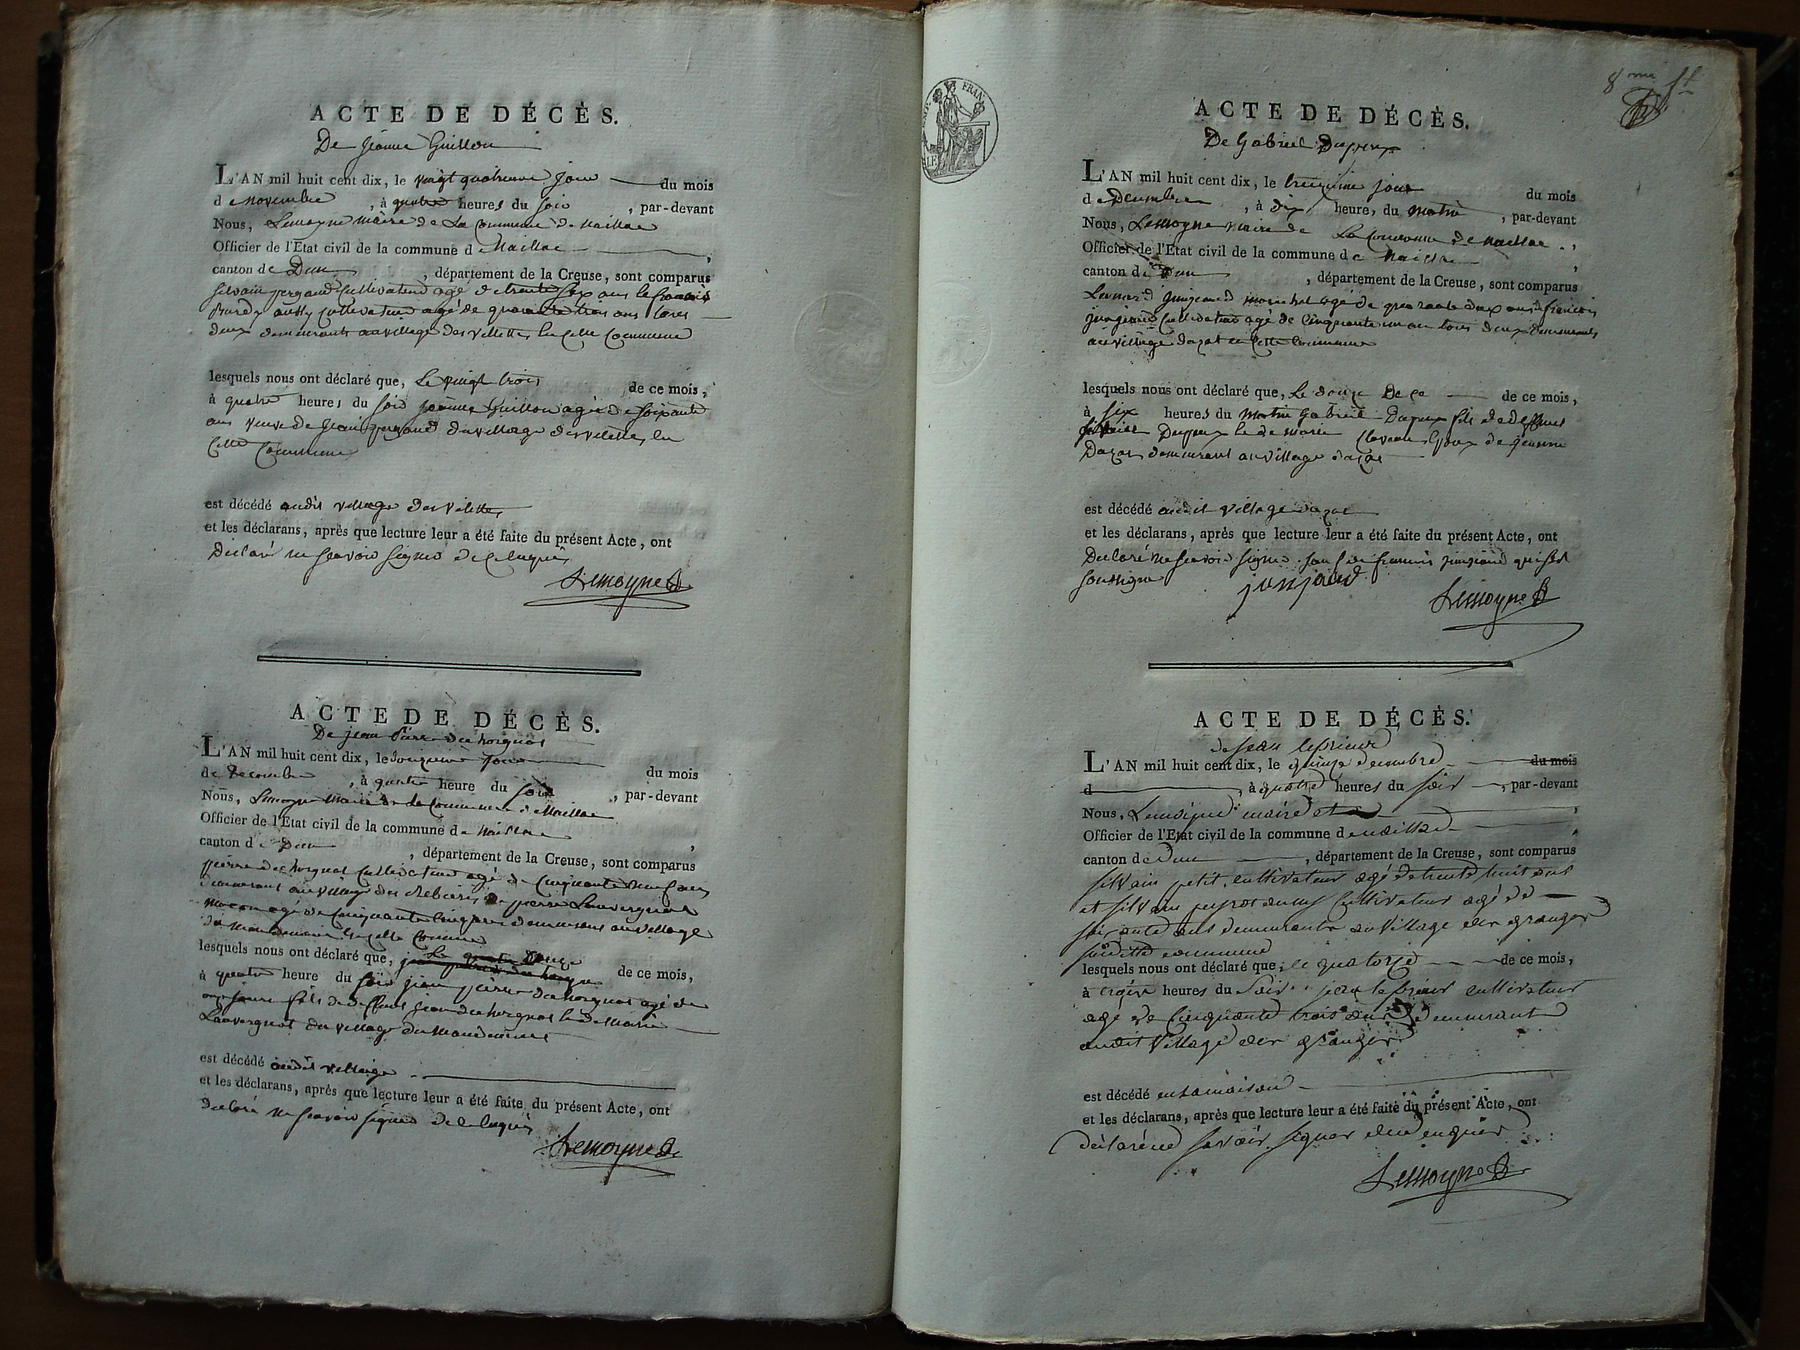 ACTE DE DÉCÈS.
De Jeanne Guillon
L'AN mil huit cent dix, le vingt quatrieme jour du mois
de novembre, à quatre heures du soir, par-devant
Nous, Lemoyne maire de La Commune de Naillac
Officier de l'Etat civil de la commune de Naillac,
canton de Dun, département de la Creuse, sont comparus
Silvain cultivateur agé de trente six ans le francois
aussy cultivateur agé de quarante trois ans tous
deux demeurants au village des Villettes en Cette Commune
lesquels nous ont déclaré que, Le vingt trois de ce mois,
à quatre heures du soir Jeanne Guillon agée de soixante
ans veuve de Jean du village des Villettes en
Cette Commune
est décédé audit village des Villettes
et les déclarans, après que lecture leur a été faite du présent Acte, ont
Declaré ne scavoir signer de ce enquis
Lemoyne
ACTE DE DÉCÈS.
De jean Pierre
L'AN mil huit cent dix, le jour du mois
de Decembre, à quatre heure du soir, par-devant
Nous, Lemoyne Maire de La Commune de Naillac
Officier de l'Etat civil de la commune de Naillac,
canton de Dun, département de la Creuse, sont comparus
pierre cultivateur agé de Cinquante ans
demeurant au village des pierre Lauvergnat
macon agé de Cinquante Cinq ans demeurant au village
en cette Commune
lesquels nous ont déclaré que, de ce mois,
à quatre heure du soir jean pierre agé de
fils de deffunt jean de Marie
Lauvergnat du village du
est décédé audit village
et les déclarans, après que lecture leur a été faite du présent Acte, ont
declaré ne scavoir signer de ce enquis
Lemoyne
8me ft
FRAN
ACTE DE DÉCÈS.
De Gabriel Dupeux
L'AN mil huit cent dix, le treizieme jour du mois
de Decembre, à dix heure, du matin, par-devant
Nous, Lemoyne maire de La Commune de Naillac,
Officier de l'Etat civil de la commune de Naillac,
canton de Dun, département de la Creuse, sont comparus
Leonard Junjaud marechal agé de quarante deux ans francois
Junjaud Cultivateur agé de Cinquante un an tous deux demeurants
au village dazat en Cette Commune
lesquels nous ont déclaré que, Le douze De ce de ce mois,
à six heures du matin Gabriel Dupeux fils de deffunt
Dupeux de marie Epoux de
Dazat demeurant au village dazat
est décédé audit village dazat
et les déclarans, après que lecture leur a été faite du présent Acte, ont
Declaré ne scavoir signer sauf francois Junjaud qui sest
soussigne
junjaud
Lemoyne
ACTE DE DÉCÈS.
de jean leprieur
L'AN mil huit cent dix, le quinze decembre du mois
d, à quatre heures du soir, par-devant
Nous, Lemoyne maire,
Officier de l'Etat civil de la commune de naillac,
canton de Dun, département de la Creuse, sont comparus
silvain petit cultivateur agé de trente huit ans
et silvain cultivateur agé de
soixante ans demeurants au village des granges
susditte commune
lesquels nous ont déclaré que, le quatorze de ce mois,
à onze heures du Soir jean leprieur cultivateur
agé de Cinquante trois ans demeurant
audit village des granges
est décédé en sa maison
et les déclarans, après que lecture leur a été faite du présent Acte, ont
déclaré ne savoir signer de ce enquis
Lemoyne